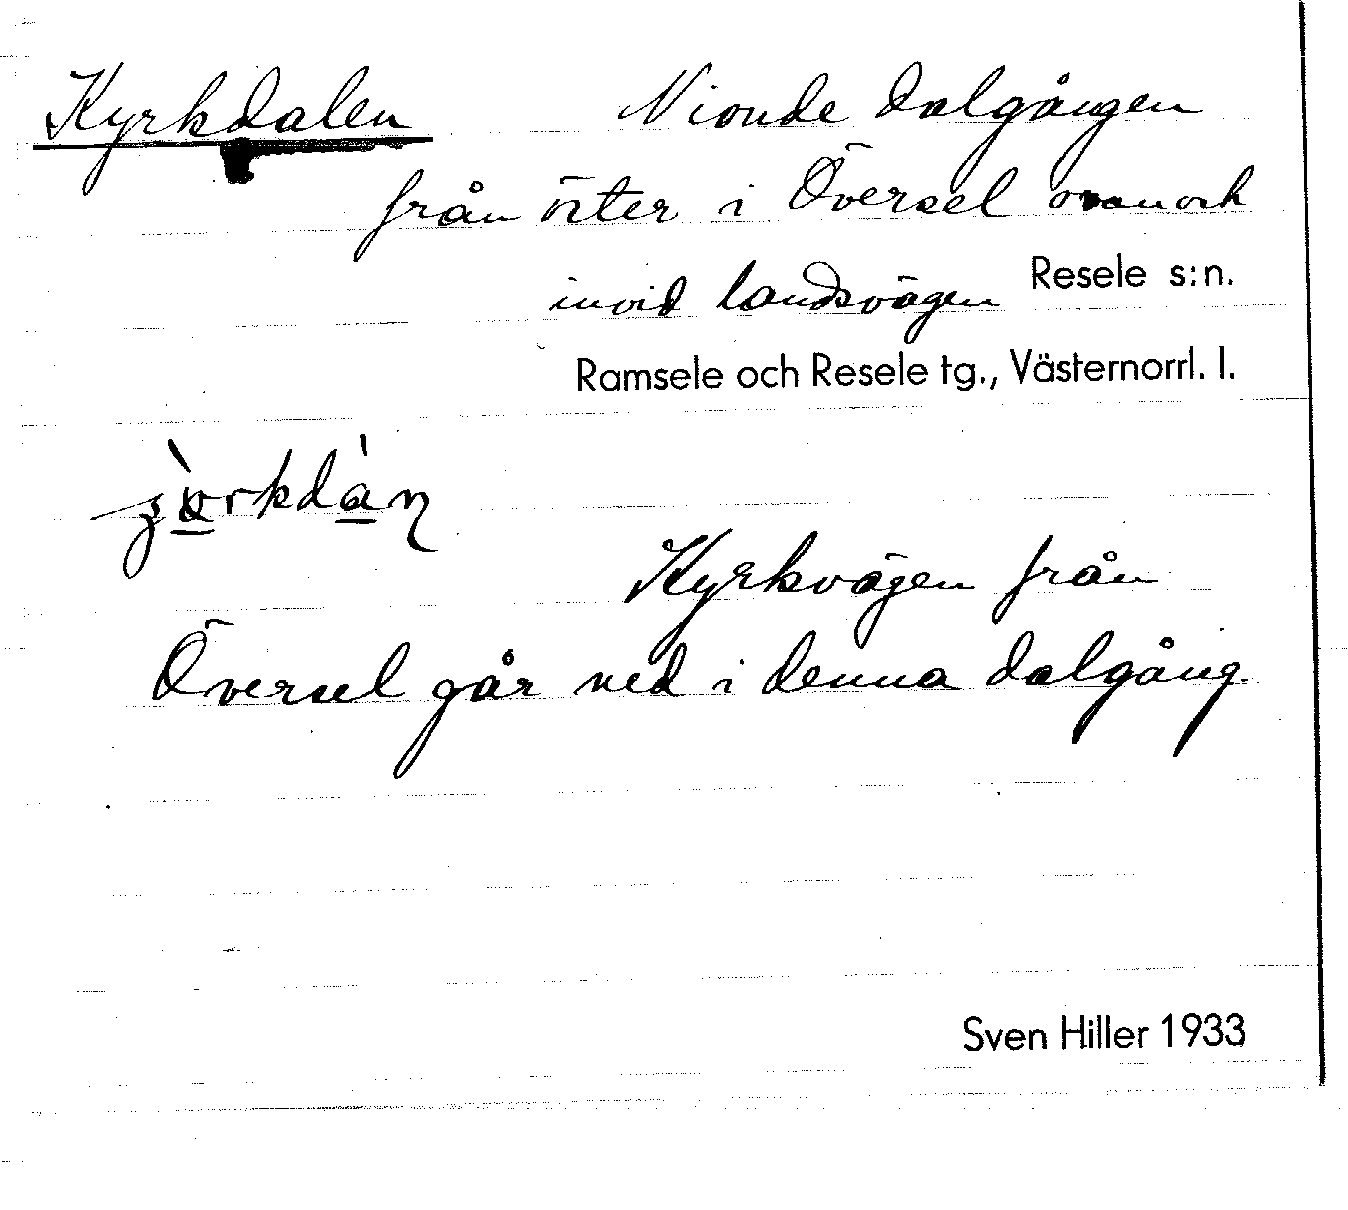 Kyrkdalen Nionde dalgången
från öster i Översel ovan och
invid landsvägen Resele s:n.
Ramsele och Resele tg., Västernorrl. l.
Kyrkvägen från
Översel går ned i denna dalgång.
Sven Hiller 1933